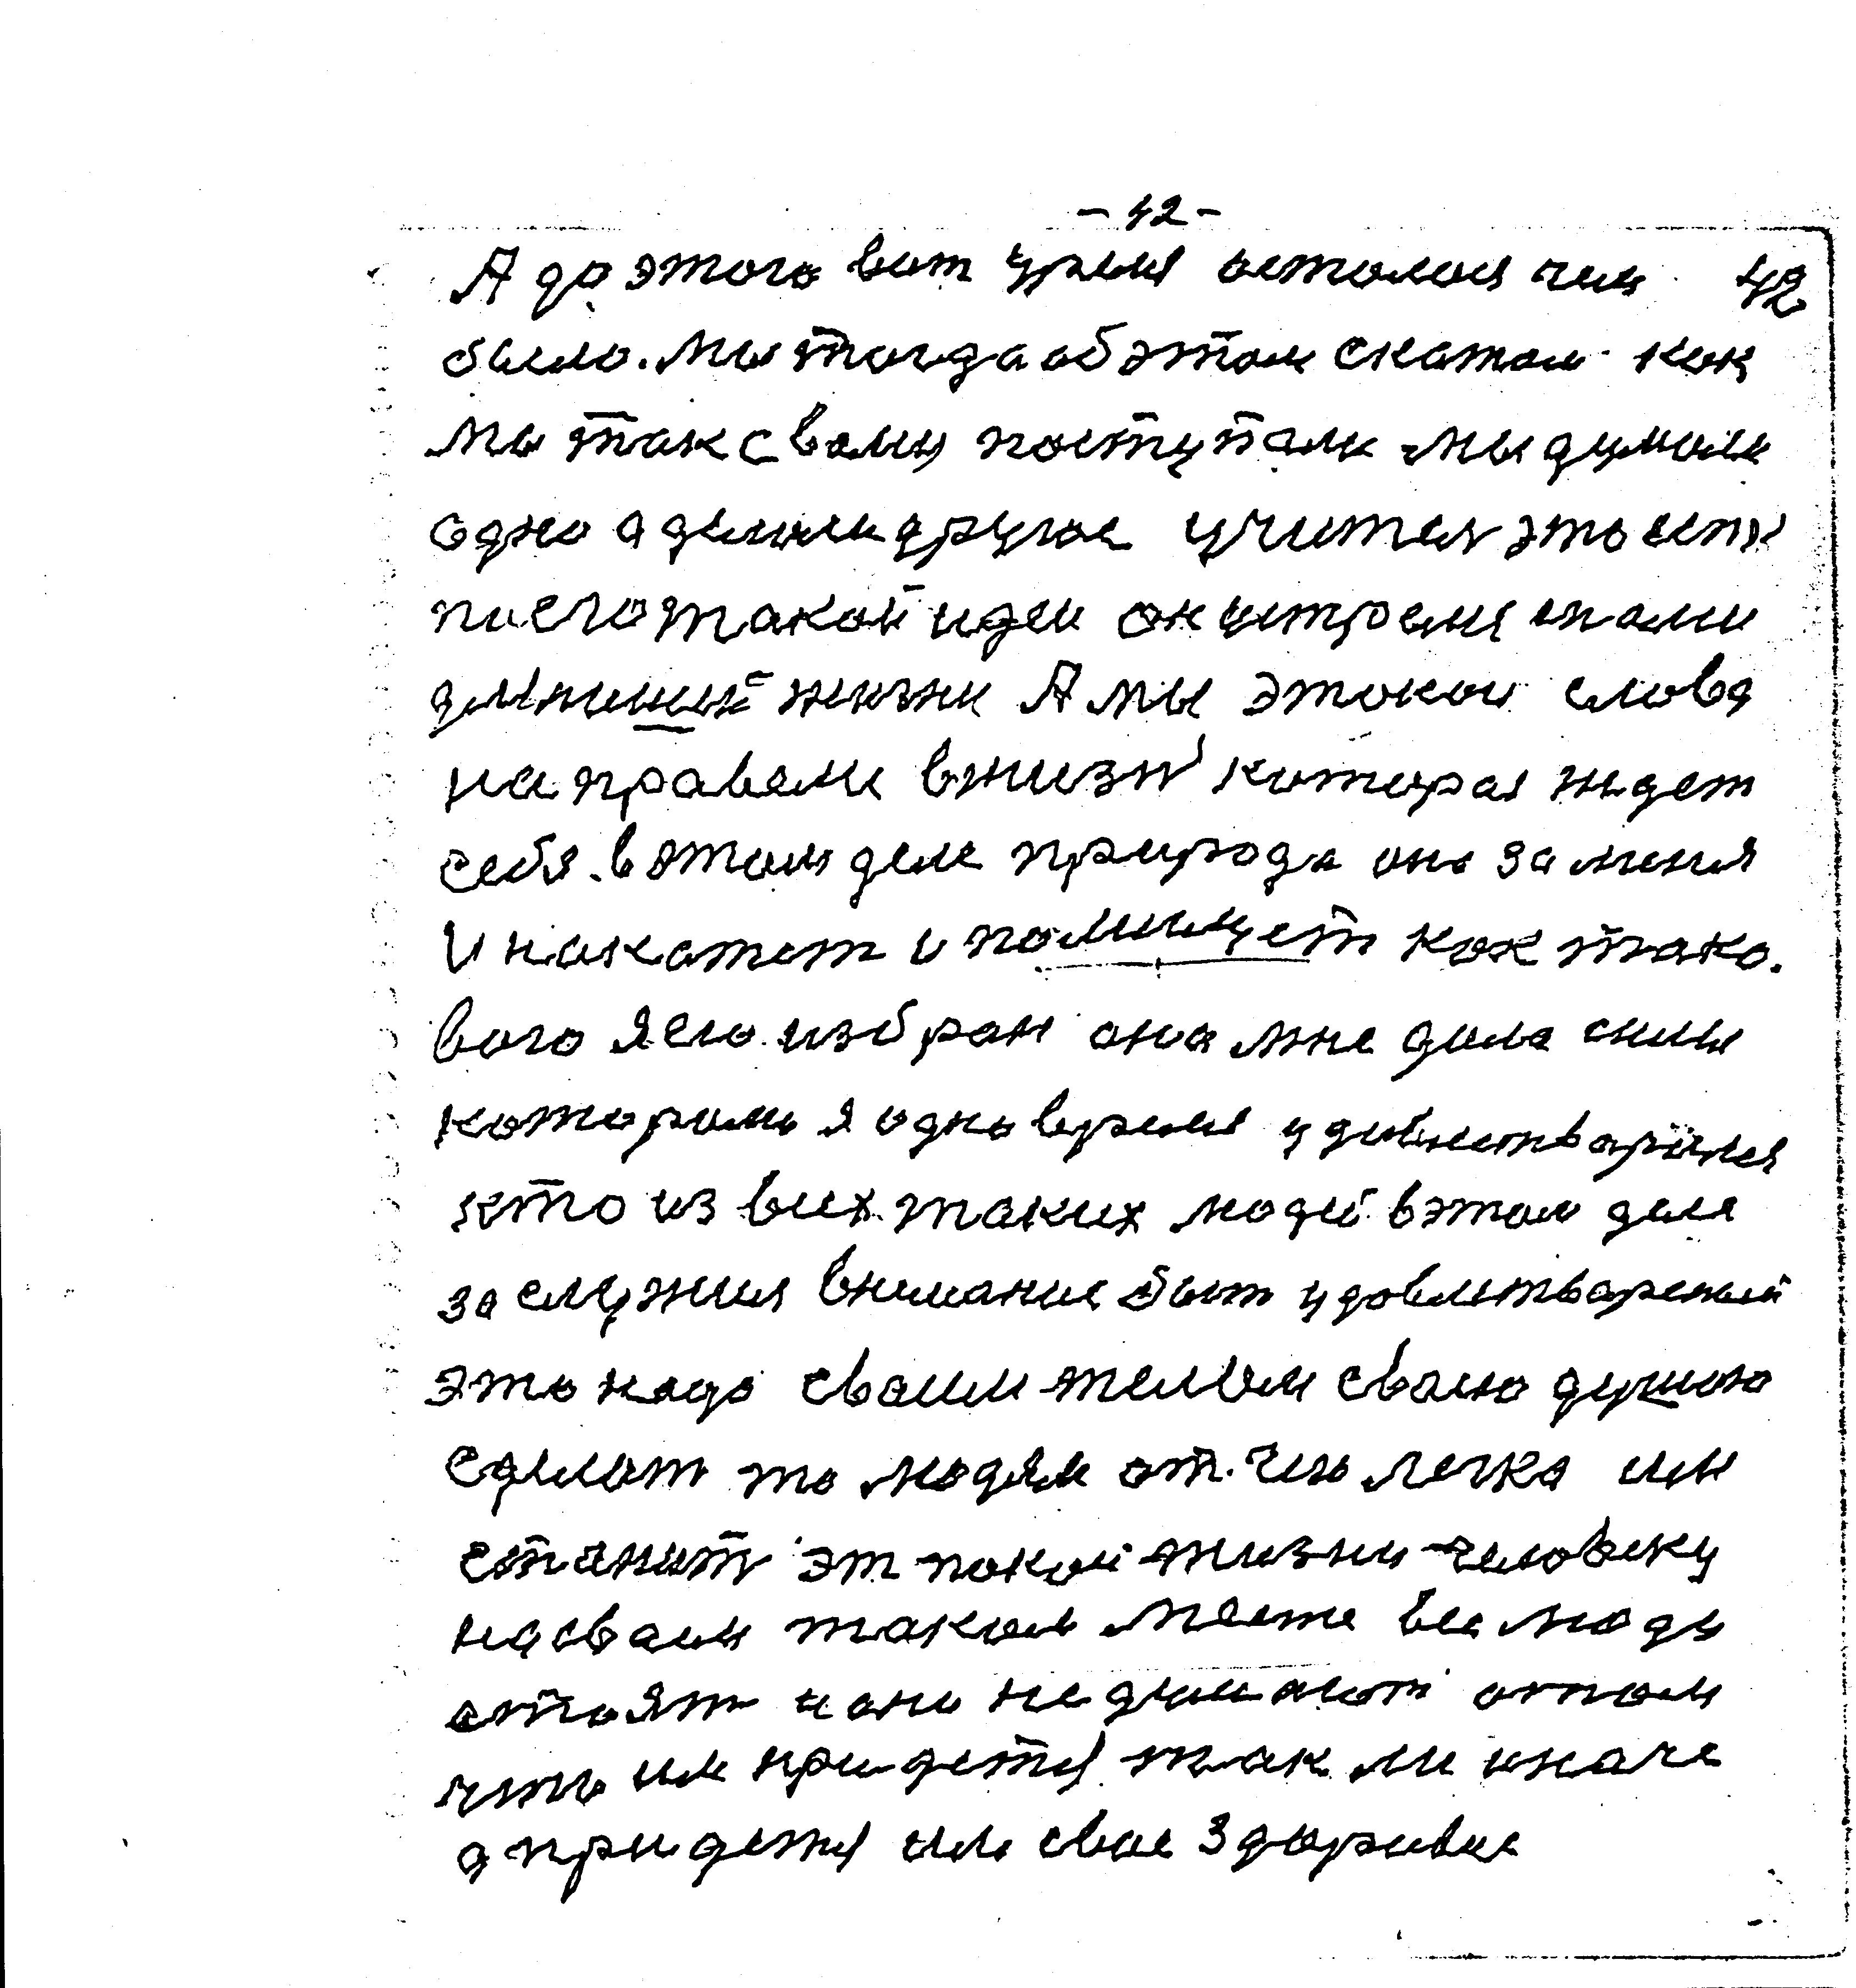 - 42 -
А до этого вот время осталося чем 42
было. Мы тогда об этом скатом как
мы так с вами поступали мы думали
одно а делали другое учител это ест
по его такой идеи он устремя
жизни А мы этокои слова
на правели в жизн которая ждет
себя. в этом деле природа оно за меня
и накатет и помилует как тако.
вого я его избран она мне дала силы
которомь я одно время удовлетварился
кто из всех таких людей в этом деле
за служил внимание быт удовлетвареный
это надо своим телом своею душою
сделат то людям от. чего легко им
станит эт покои жизни человеку
на своем таком месте все люди
стоят и они не думают отом
что им придется так ли иначе
а придется им свое здоровие